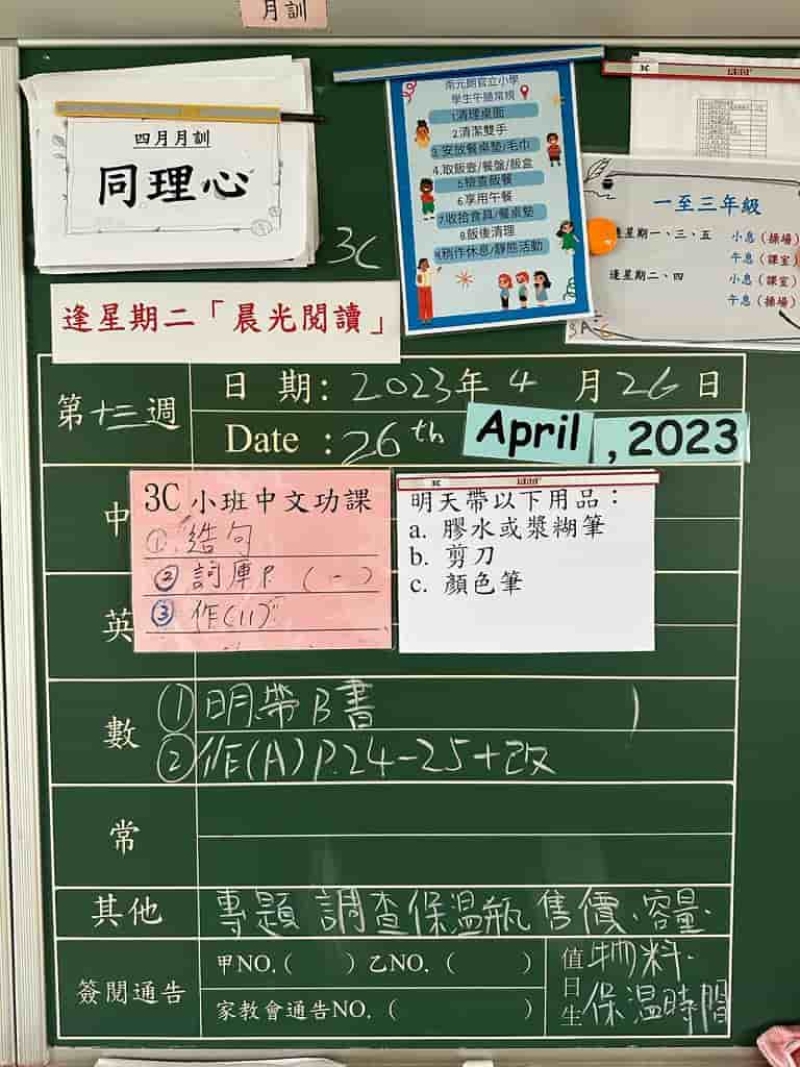 月訓
四月月訓
同理心
3C
逢星期二「晨光閱讀」
南元朗官立小學
學生午膳常規
1清理桌面
2清潔雙手
3.安放餐桌墊/毛巾
4.取飯壺/餐盤/飯盒
5檢查飯餐
6享用午餐
7收拾食具/餐桌墊
8飯後清理
9稍作休息/靜態活動
一至三年級
逢星期一、三、五 小息(操場)
午息(課室)
逢星期二、四 小息(課室)
午息(操場)
第十三週
日期: 2023年4月26日
Date : 26th April , 2023
中
3C 小班中文功課
① 造句
② 詞庫P. (一)
③ 作(11)
明天帶以下用品:
a. 膠水或漿糊筆
b. 剪刀
c. 顏色筆
英
數
① 明帶B書
② 作(A)P.24-25+改
常
其他 專題 調查保溫瓶 售價.容量.
物料.
保溫時間
簽閱通告
甲NO.( ) 乙NO. ( )
家教會通告NO. ( )
值日生